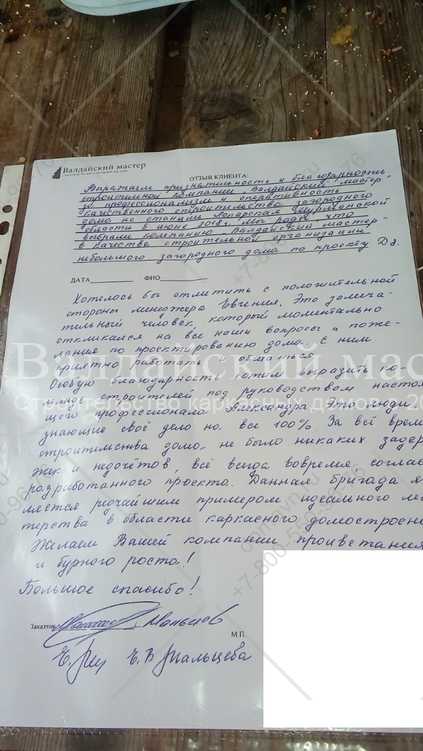 Валдайский мастер
ОТЗЫВ КЛИЕНТА:
Выражаем признательность и благодарность
строительной компании "Валдайский мастер"
за профессионализм и оперативность
качественного строительства загородного
дома на станции
области в июне 2018г. Мы рады, что
выбрали компанию Валдайский мастер
в качестве строительной организации
небольшого загородного дома по проекту Д2.
ДАТА ФИО
Хотелось бы отметить с положительной
стороны менеджера Евгения. Это замеча-
тельный человек, который моментально
откликался на все наши вопросы и поже-
лания по проектированию дома. С ним
приятно работать и общаться.
Особую благодарность хотим выразить
строителей под руководством настоя
щего профессионала Александра. Это люди
знающие своё дело на все 100%. За всё время
строительства дома, не было никаких задер
жек и недочётов, всё всегда вовремя,
разработанного проекта. Данная бригада я
ляется редчайшим примером идеального
терства в области каркасного домостроен
Желаем Вашей компании процветания
и бурного роста!
Большое спасибо!
Заказчик
М.П.
Е.В. Мальцева
Валдайский мас
Строительство каркасных домов